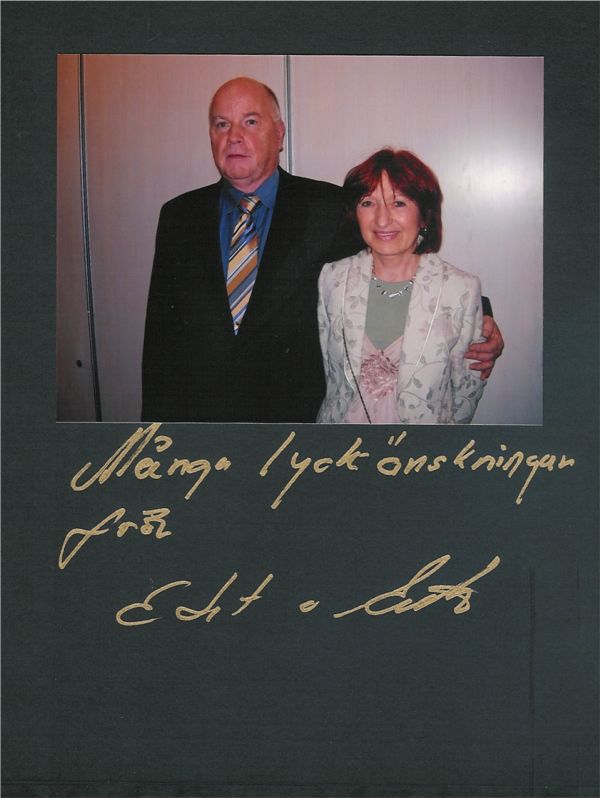 Många lyckönskningar
från
Edit o